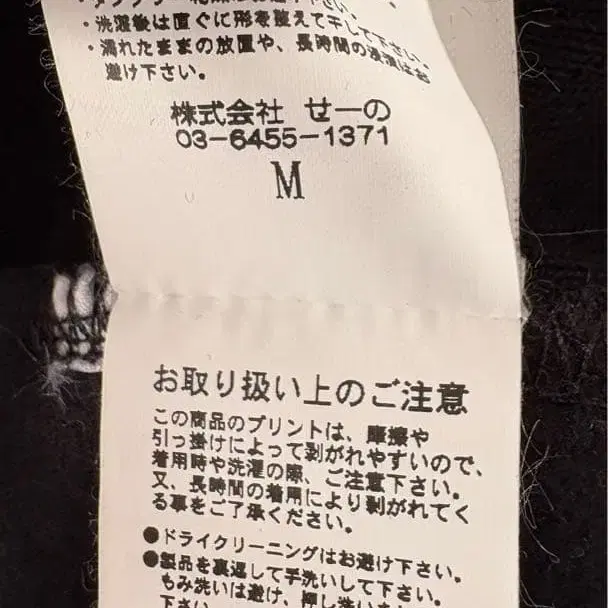 ・洗濯後は直ぐに形を整えて干して下さい。
・濡れたままの放置や、長時間の浸漬はお
避け下さい。
株式会社 せーの
03-6455-1371
M
お取り扱い上のご注意
この商品のプリントは、摩擦や
引っ掛けによって剥がれやすいので、
着用時や洗濯の際、ご注意下さい。
又、長時間の着用により剥がれてく
る事をご了承ください。
●ドライクリーニングはお避け下さい。
●製品を裏返して手洗いして下さい。
もみ洗いは避け、押し洗い
下さい